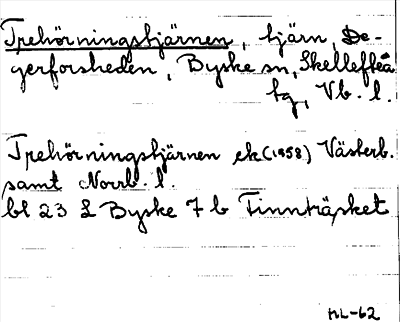 Trehörningstjärnen, tjärn, De-
gerforsheden, Byske sn, Skellefteå
tg, Vb. l.
Trehörningstjärnen ek (1958) Västerb.
samt Norrb. l.
bl 23 L Byske 7 b Finnträsket
HL-62